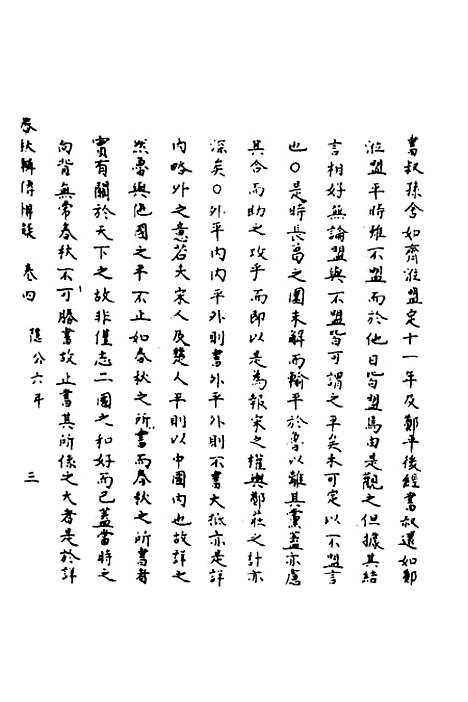 書叔孫舍如齊涖盟定十一年及鄭平後經書叔還如鄭
涖盟平時雖不盟而於他日皆盟焉由是觀之但據其結
言相好無論盟與不盟皆可謂之平矣未可定以不盟言
也〇是時長葛之圍未解而輸平於魯以離其黨蓋亦慮
其合而助之攻乎而即以是為報宋之權與鄭莊之計亦
深矣〇外平內內平外則書外平外則不書大抵亦是詳
內略外之意若夫宋人及楚人平則以中國內也故詳之
然魯與他國之平不止如春秋之所書而春秋之所書者
實有關於天下之故非僅志二國之和好而已蓋當時之
向背無常春秋不可勝書故止書其所係之大者是於詳
春秋輯傳辨疑 卷四 隱公六年 三